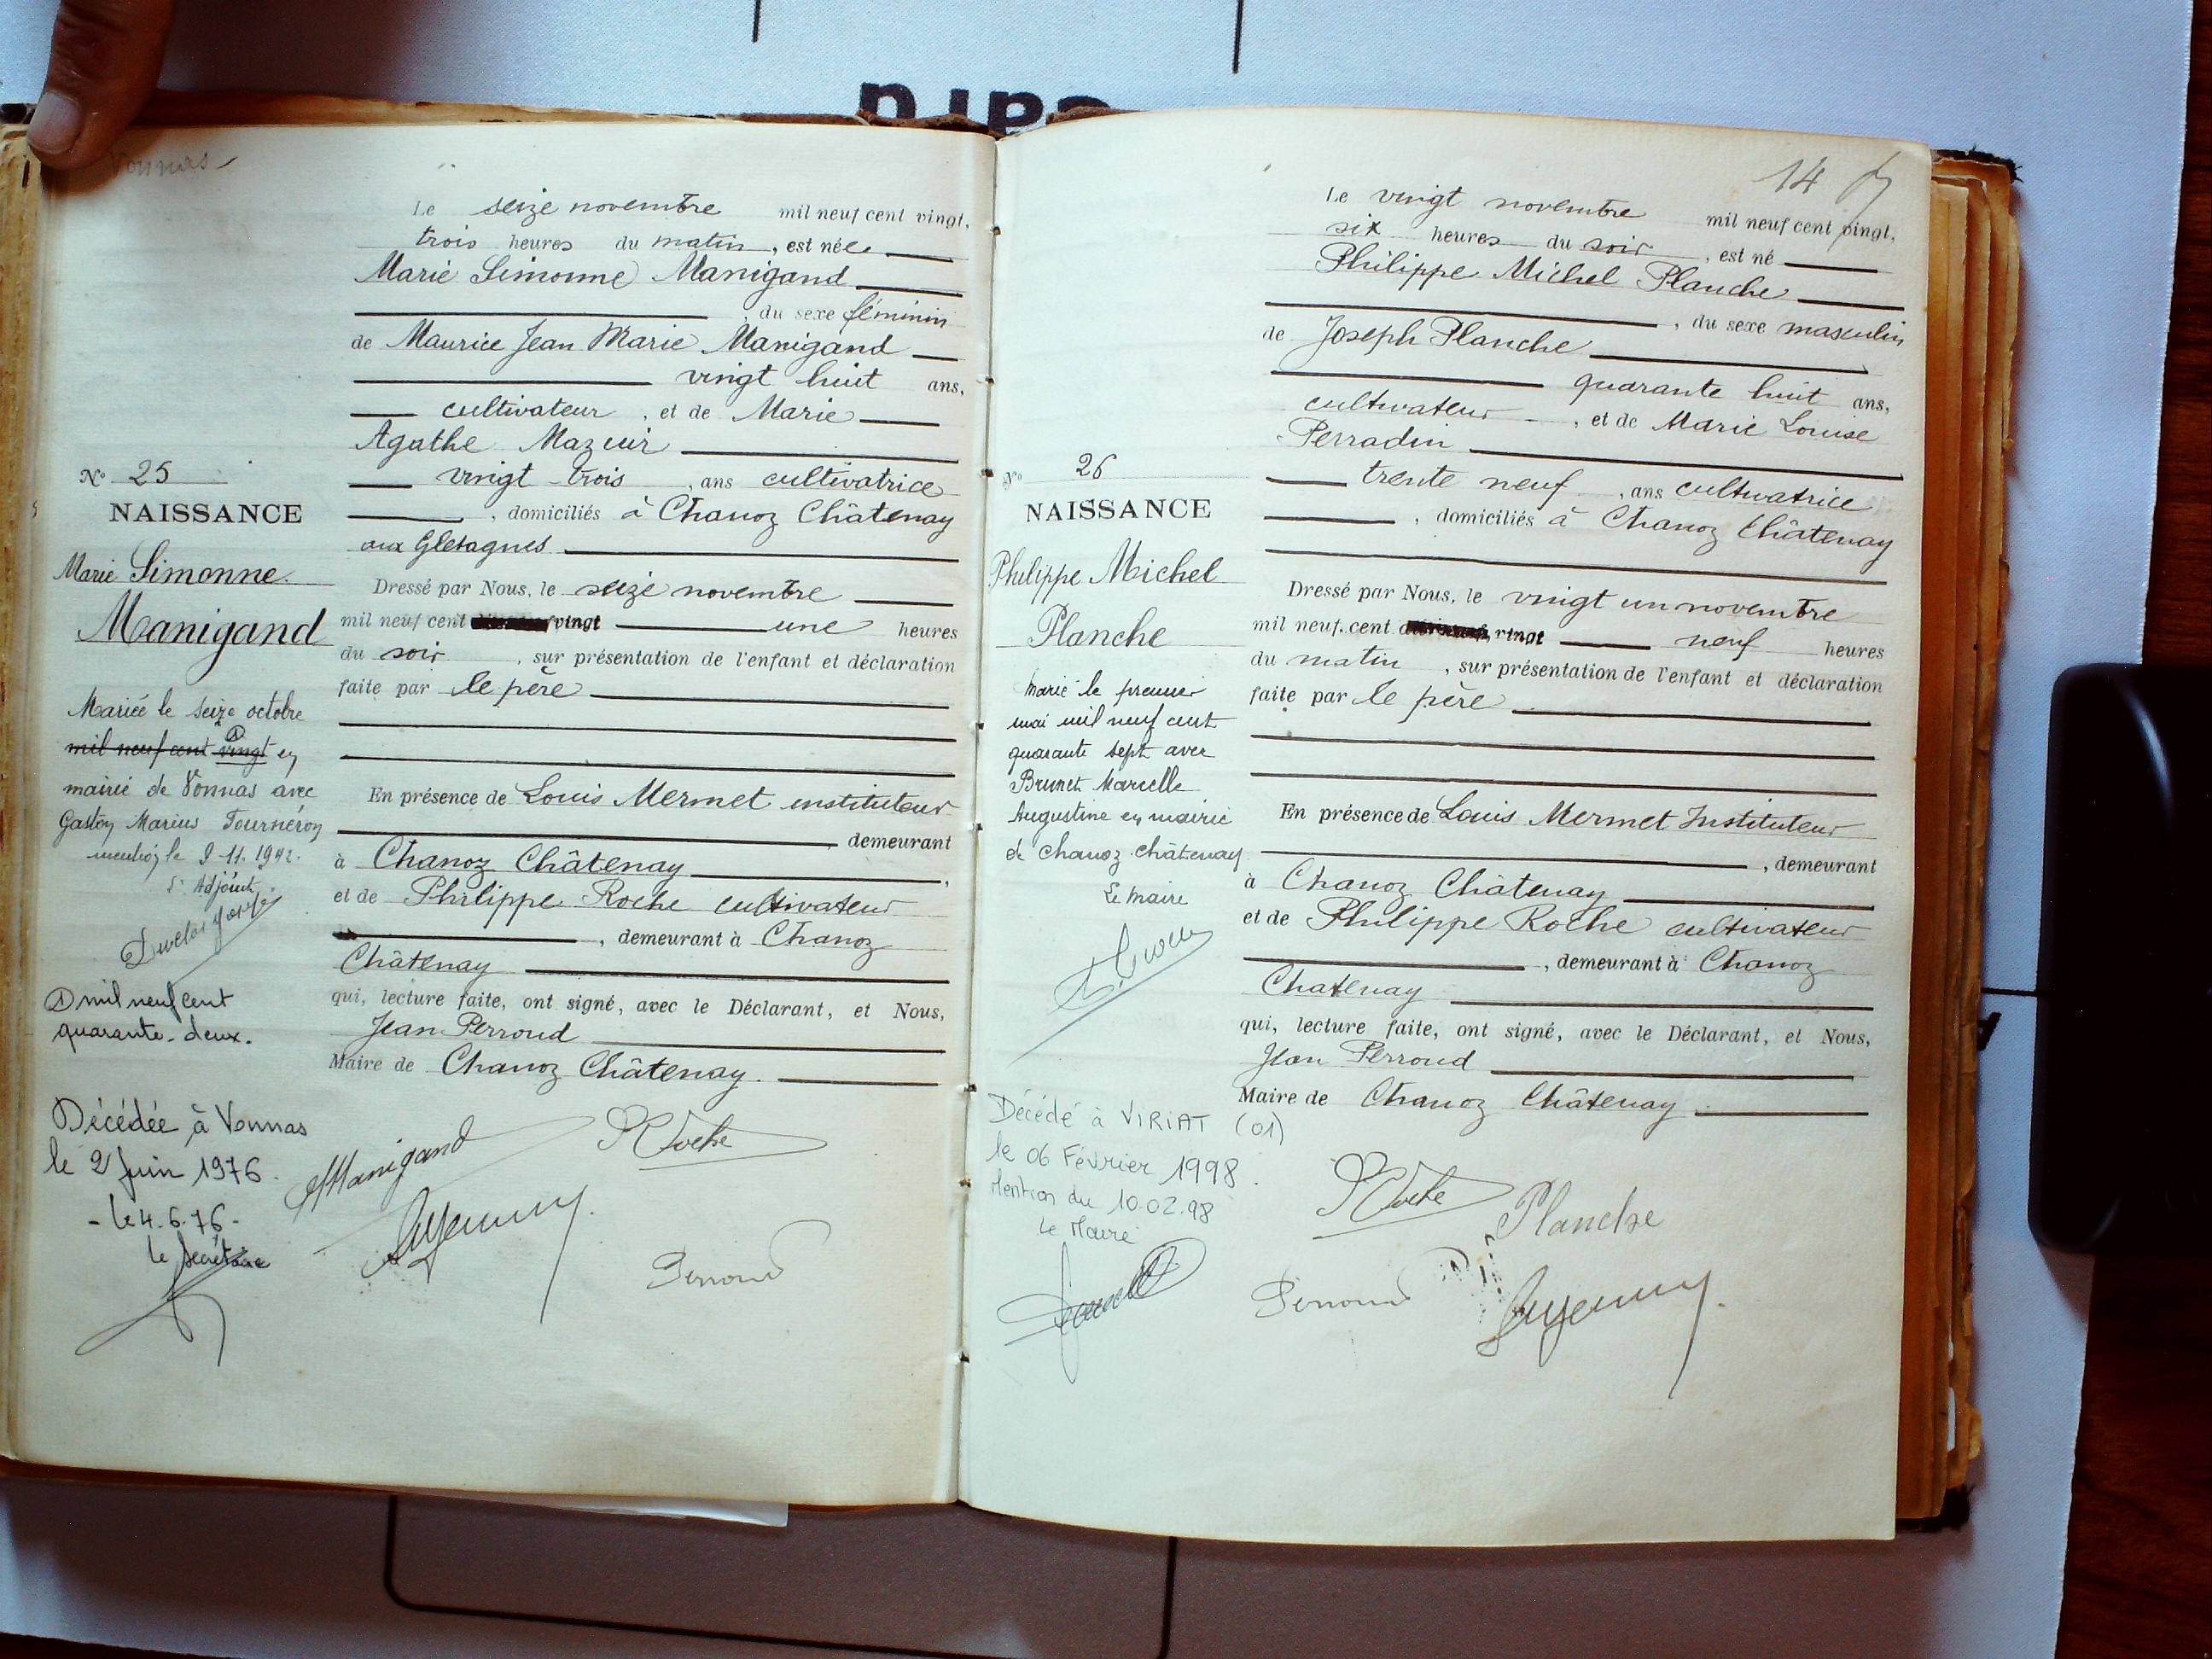 Vonnas
Le seize novembre mil neuf cent vingt,
trois heures du matin, est née
Marie Simonne Manigand
, du sexe féminin
de Maurice Jean Marie Manigand
vingt huit ans,
cultivateur, et de Marie
Agathe Mazuir
vingt trois, ans cultivatrice
, domiciliés à Chanoz Châtenay
aux Gletagnes
Dressé par Nous, le seize novembre
mil neuf cent vingt une heures
du soir, sur présentation de l'enfant et déclaration
faite par le père
En présence de Louis Mermet instituteur
demeurant
à Chanoz Châtenay,
et de Philippe Roche cultivateur
, demeurant à Chanoz
Châtenay
qui, lecture faite, ont signé, avec le Déclarant, et Nous,
Jean Perroud
Maire de Chanoz Châtenay.
Manigand
Roche
Perroud
N° 25
NAISSANCE
Marie Simonne
Manigand
Mariée le seize octobre
mil neuf cent vingt en
mairie de Vonnas avec
Gaston Marius Tournéron
le 9-11-1942.
L' Adjoint
① mil neuf cent
quarante-deux.
Décédée à Vonnas
le 2 Juin 1976.
- le 4.6.76 -
le secrétaire
14
Le vingt novembre mil neuf cent vingt,
six heures du soir, est né
Philippe Michel Planche
, du sexe masculin
de Joseph Planche
quarante huit ans,
cultivateur, et de Marie Louise
Perradin
trente neuf, ans cultivatrice
, domiciliés à Chanoz Châtenay
Dressé par Nous, le vingt un novembre
mil neuf cent vingt neuf heures
du matin, sur présentation de l'enfant et déclaration
faite par le père
En présence de Louis Mermet Instituteur
, demeurant
à Chanoz Châtenay
et de Philippe Roche cultivateur
, demeurant à Chanoz
Chatenay
qui, lecture faite, ont signé, avec le Déclarant, et Nous,
Jean Perroud
Maire de Chanoz Châtenay
Roche
Planche
Perroud
N° 26
NAISSANCE
Philippe Michel
Planche
Marié le premier
mai mil neuf cent
quarante sept avec
Brunet Marcelle
Augustine en mairie
de Chanoz-Châtenay
Le Maire
Décédé à VIRIAT (01)
le 06 Février 1998.
Mention du 10.02.98
Le Maire